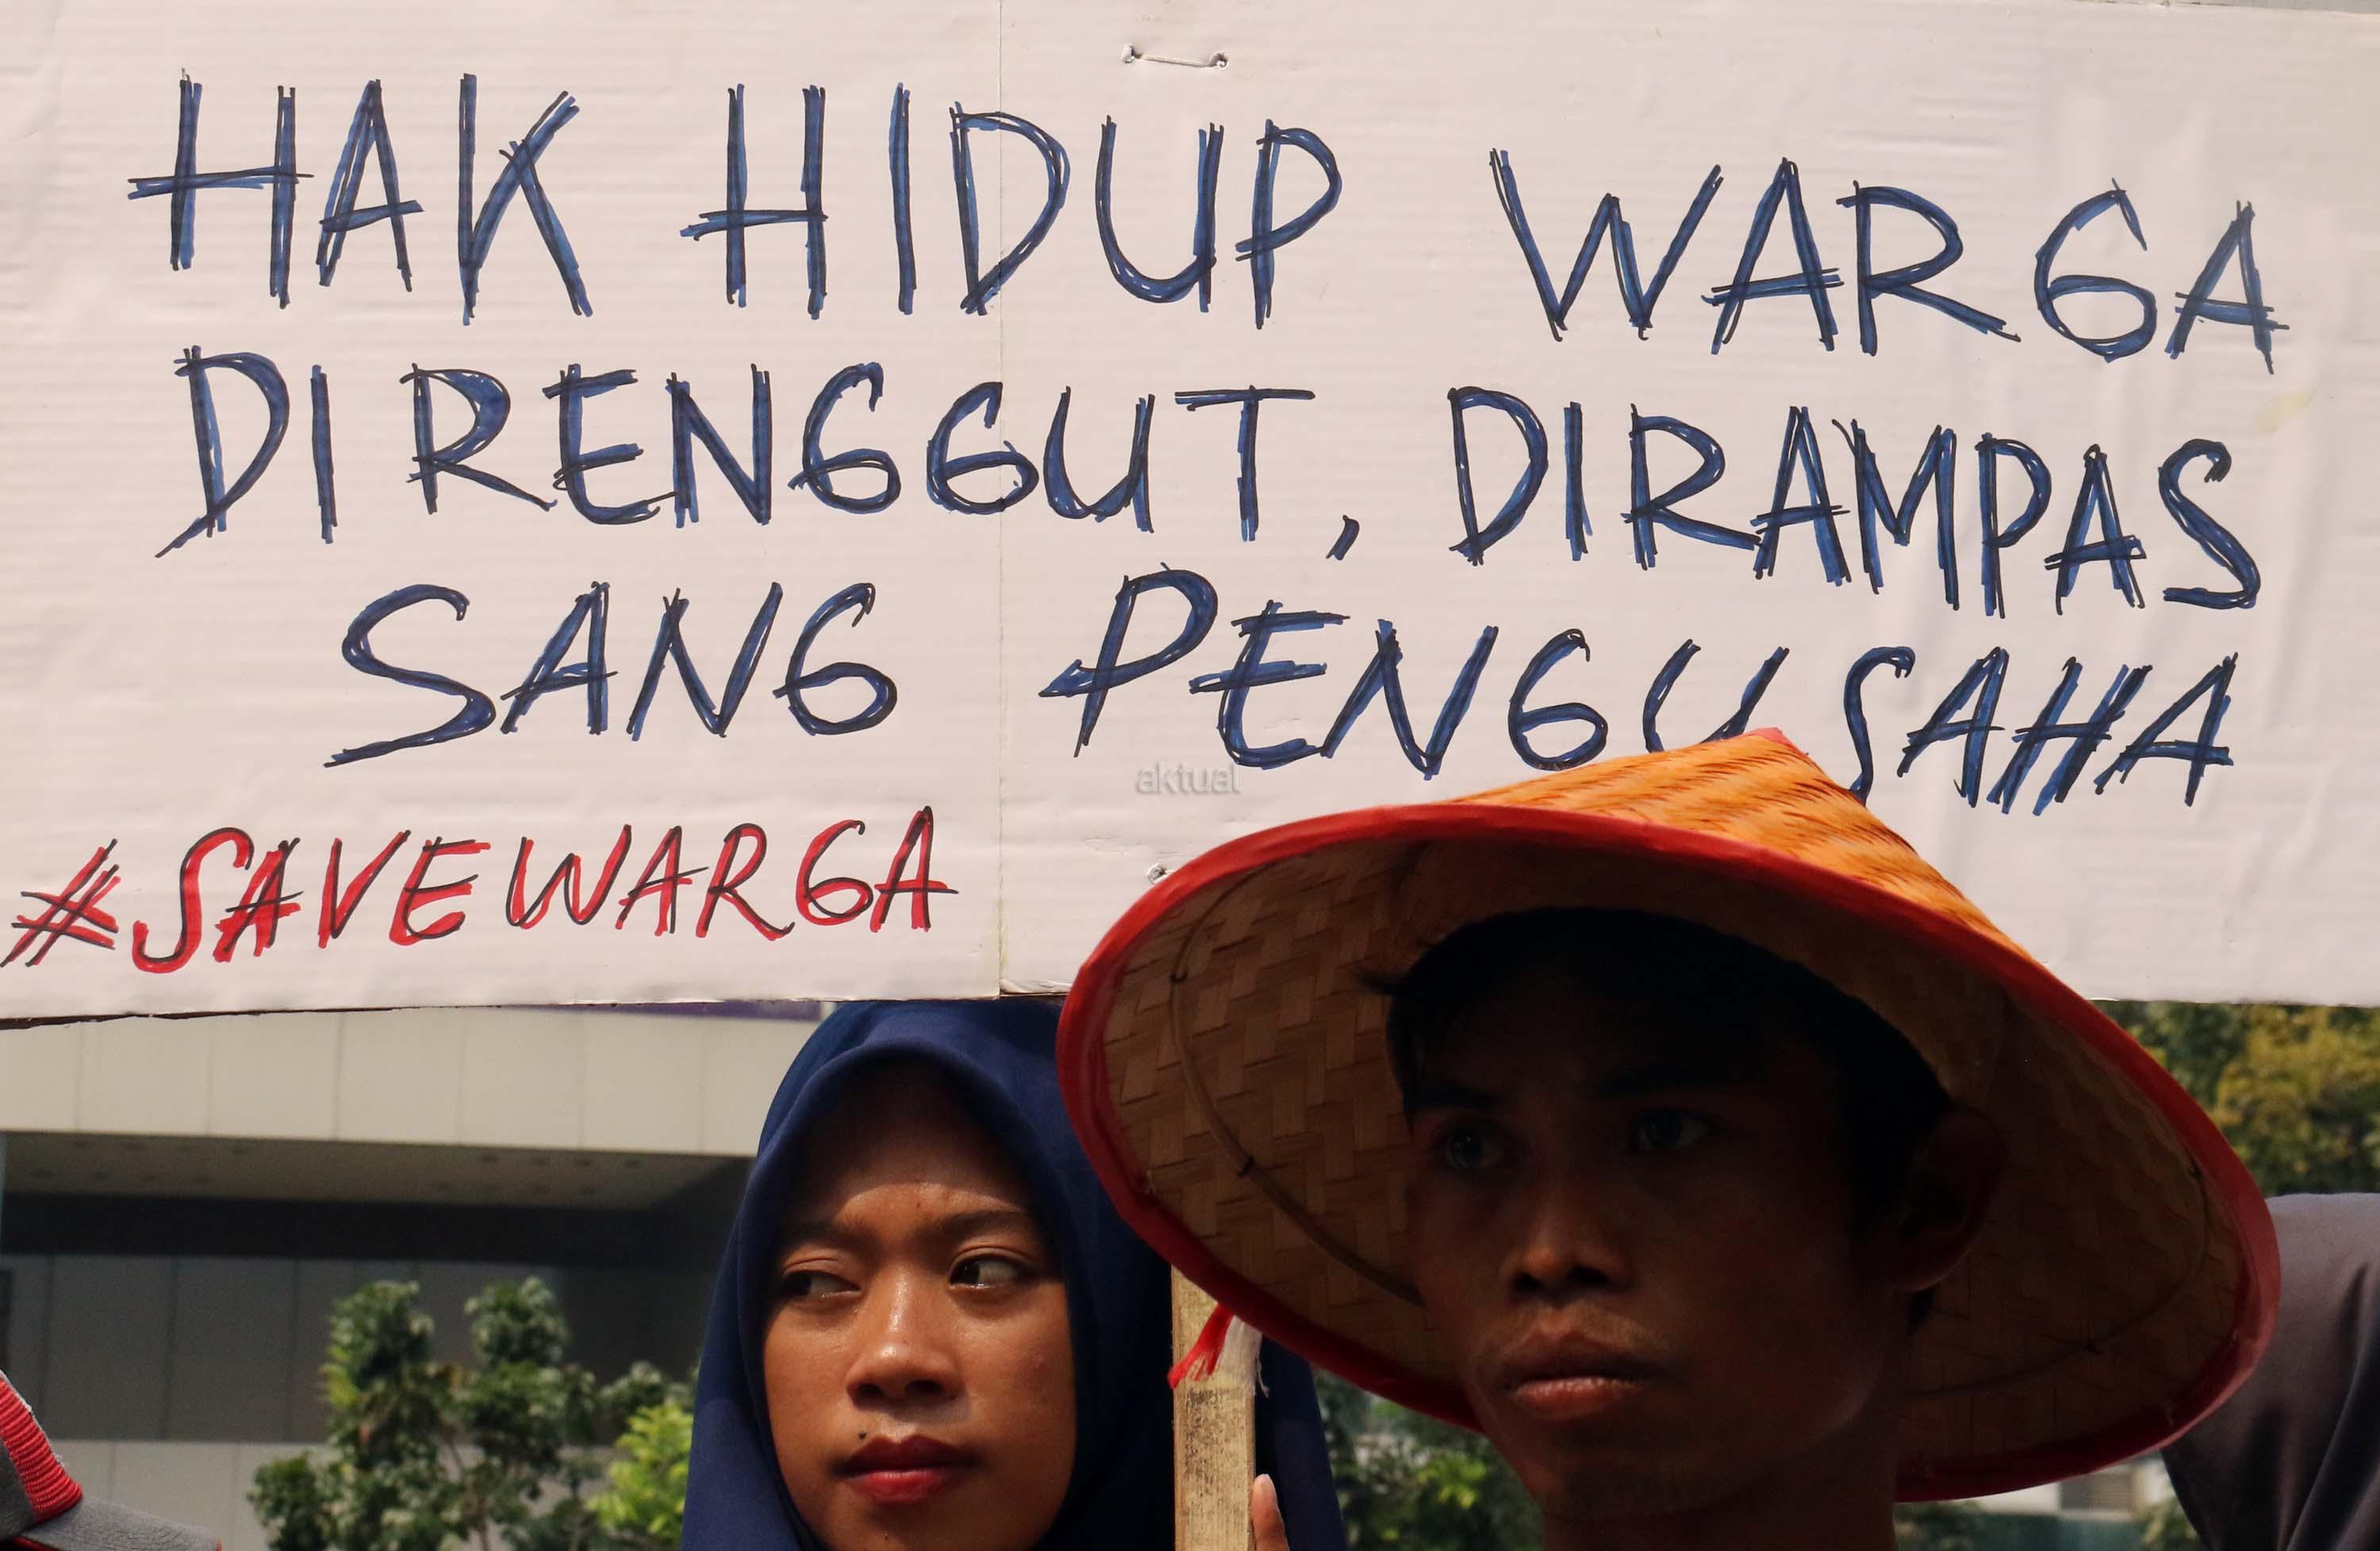 HAK HIDUP WARGA
DIRENGGUT, DIRAMPAS
SANG PENGUSAHA
aktual
#SAVEWARGA